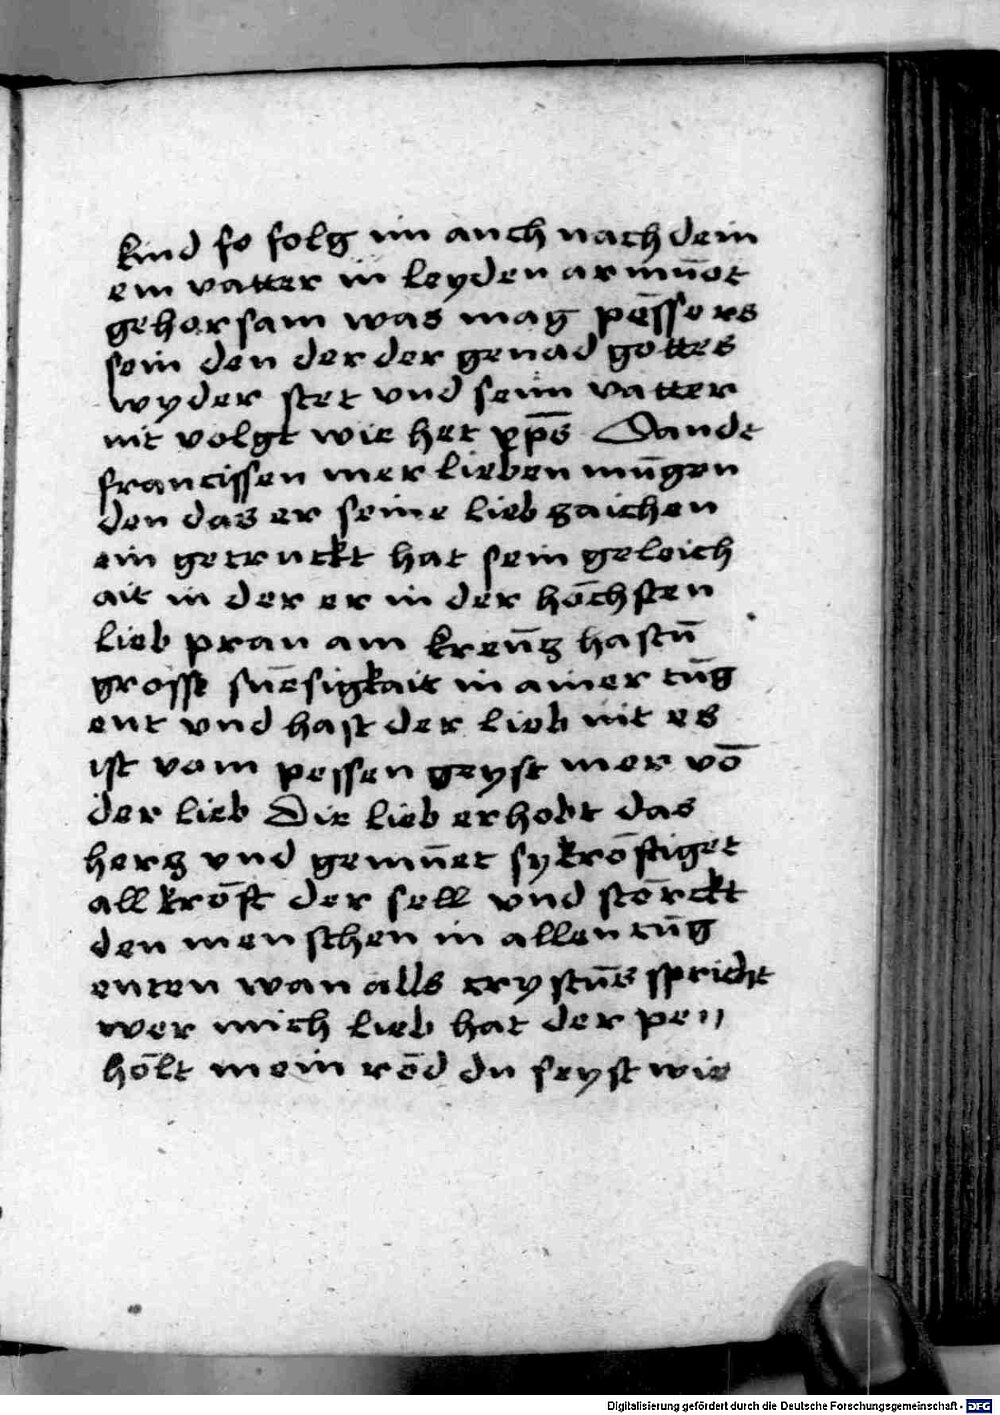 kind so folg im auch nach dein
em vatter in leyden armūot
gehorsam was mag pēssers
sein den der der genad gottes
wyder stet vnd seim vatter
nit volgt wie het xp̄s Sande
francissen mer lieben mūgen
den das er seine lieb zaichen
ein getruckt hat sein geleich
ait in der er in der hōchsten
lieb pran am kreūtz hastū
grosse sūesigkait in ainer tūg
ent vnd hast der lieb nit es
ist vom pessen geyst mer vō
der lieb Die lieb erhebt das
hertz vnd gemūet sy krōftiget
all krōft der sell vnd stōrckt
den menschen in allen tūg
enten wan alls crystūs spricht
wer mich lieb hat der pe //
hōlt mein rōd du seyst wie
Digitalisierung gefördert durch die Deutsche Forschungsgemeinschaft - DFG